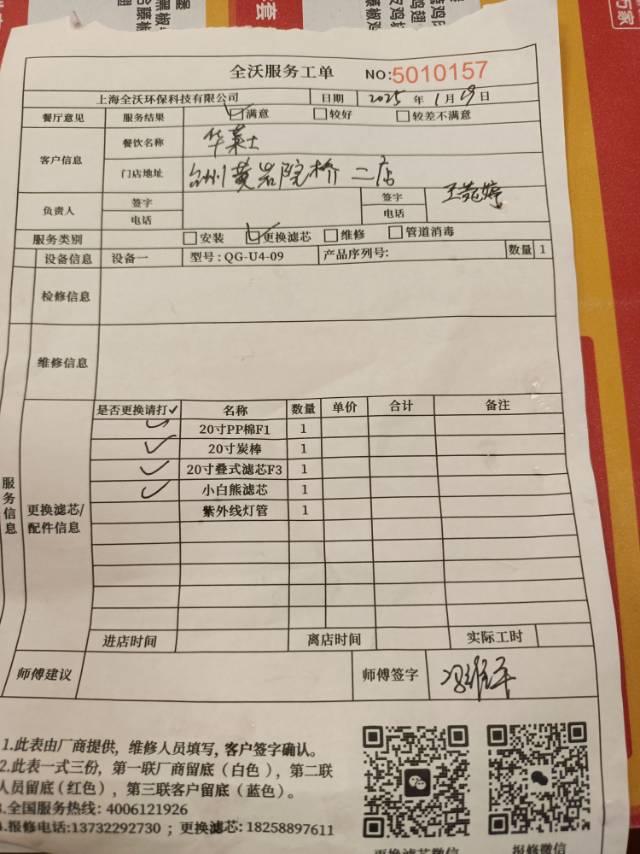 全沃服务工单 NO:5010157
上海全沃环保科技有限公司 日期 2025 年 1 月 29 日
餐厅意见 服务结果 ☑满意 □较好 □较差不满意
客户信息 餐饮名称 华莱士
门店地址 台州黄岩院桥二店
负责人 签字 签字 王苑婷
电话 电话
服务类别 □安装 ☑更换滤芯 □维修 □管道消毒
设备信息 设备一 型号:QG-U4-09 产品序列号: 数量 1
检修信息
维修信息
服务信息
更换滤芯/配件信息
是否更换请打✓ 名称 数量 单价 合计 备注
✓ 20寸PP棉F1 1
✓ 20寸炭棒 1
✓ 20寸叠式滤芯F3 1
✓ 小白熊滤芯 1
紫外线灯管 1
进店时间 离店时间 实际工时
师傅建议 师傅签字
1.此表由厂商提供，维修人员填写，客户签字确认。
2.此表一式三份，第一联厂商留底（白色），第二联
人员留底(红色），第三联客户留底（蓝色）。
3.全国服务热线: 4006121926
4.报修电话:13732292730 ; 更换滤芯: 18258897611
更换滤芯微信 报修微信